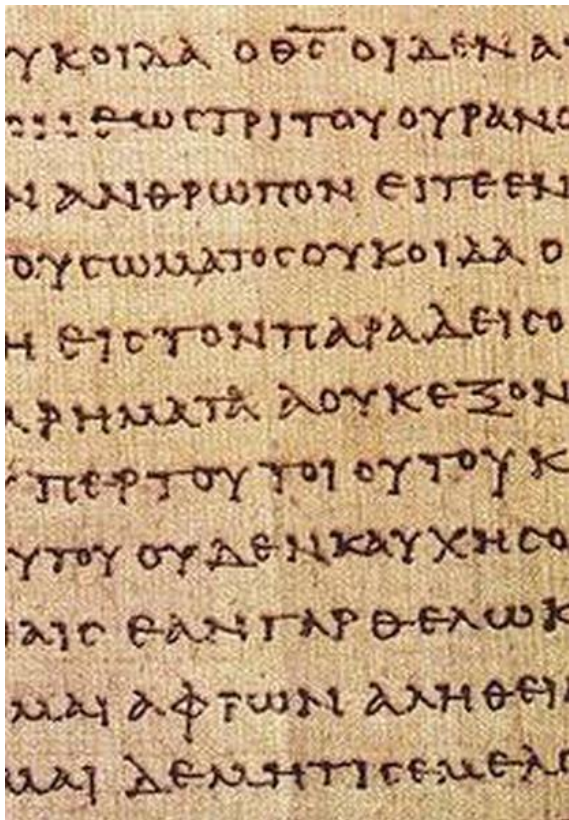 ΥΚΟΙΔΑ Ο ΘϹ̅ ΟΙΔΕΝ Α
ΕΩϹ ΤΡΙΤΟΥ ΟΥΡΑΝΟ
Ν ΑΝΘΡΩΠΟΝ ΕΙΤΕ ΕΝ
ΟΥ ϹΩΜΑΤΟϹ ΟΥΚ ΟΙΔΑ Ο
Η ΕΙϹ ΤΟΝ ΠΑΡΑΔΕΙϹΟ
Α ΡΗΜΑΤΑ Α ΟΥΚ ΕΞΟΝ
ΥΠΕΡ ΤΟΥ ΤΟΙΟΥΤΟΥ Κ
ΥΤΟΥ ΟΥΔΕΝ ΚΑΥΧΗϹΟ
ΑΙϹ ΕΑΝ ΓΑΡ ΘΕΛΩ Κ
ΜΑΙ ΑΦΡΩΝ ΑΛΗΘΕΙ
ΜΑΙ ΔΕ ΜΗ ΤΙϹ ΕΜΕ ΛΟ